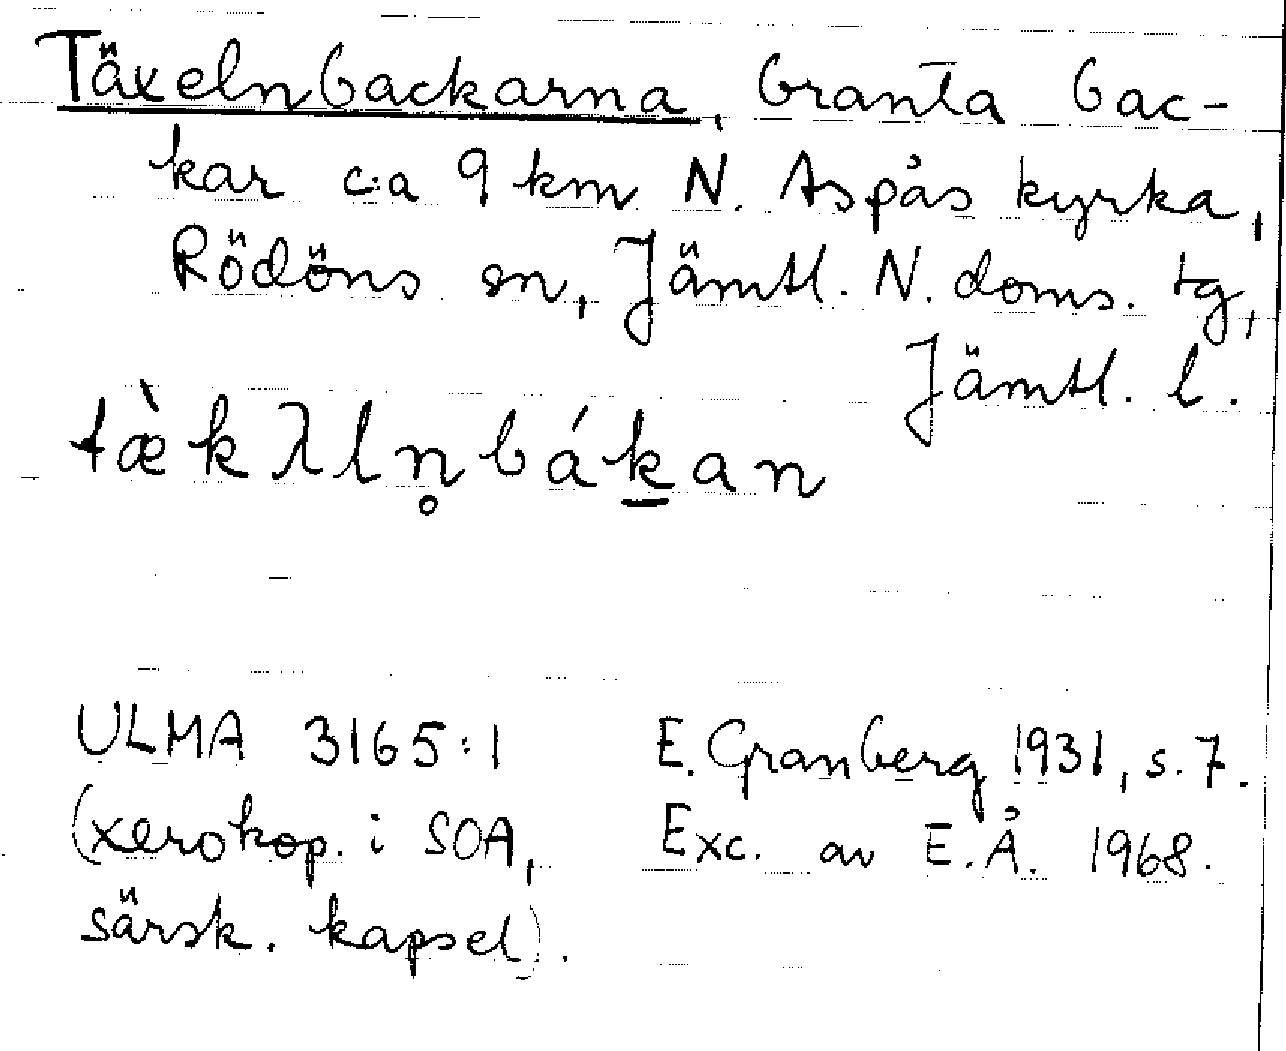 Täxelnbackarna, branta bac-
kar c:a 9 km N. Aspås kyrka,
Rödöns sn, Jämtl. N. doms. tg,
Jämtl. l.
tæ̀kλln̥bák̲an
ULMA 3165:1 E. Granberg 1931, s. 7.
(xerokop. i SOA, Exc. av E.Å. 1968.
särsk. kapsel).